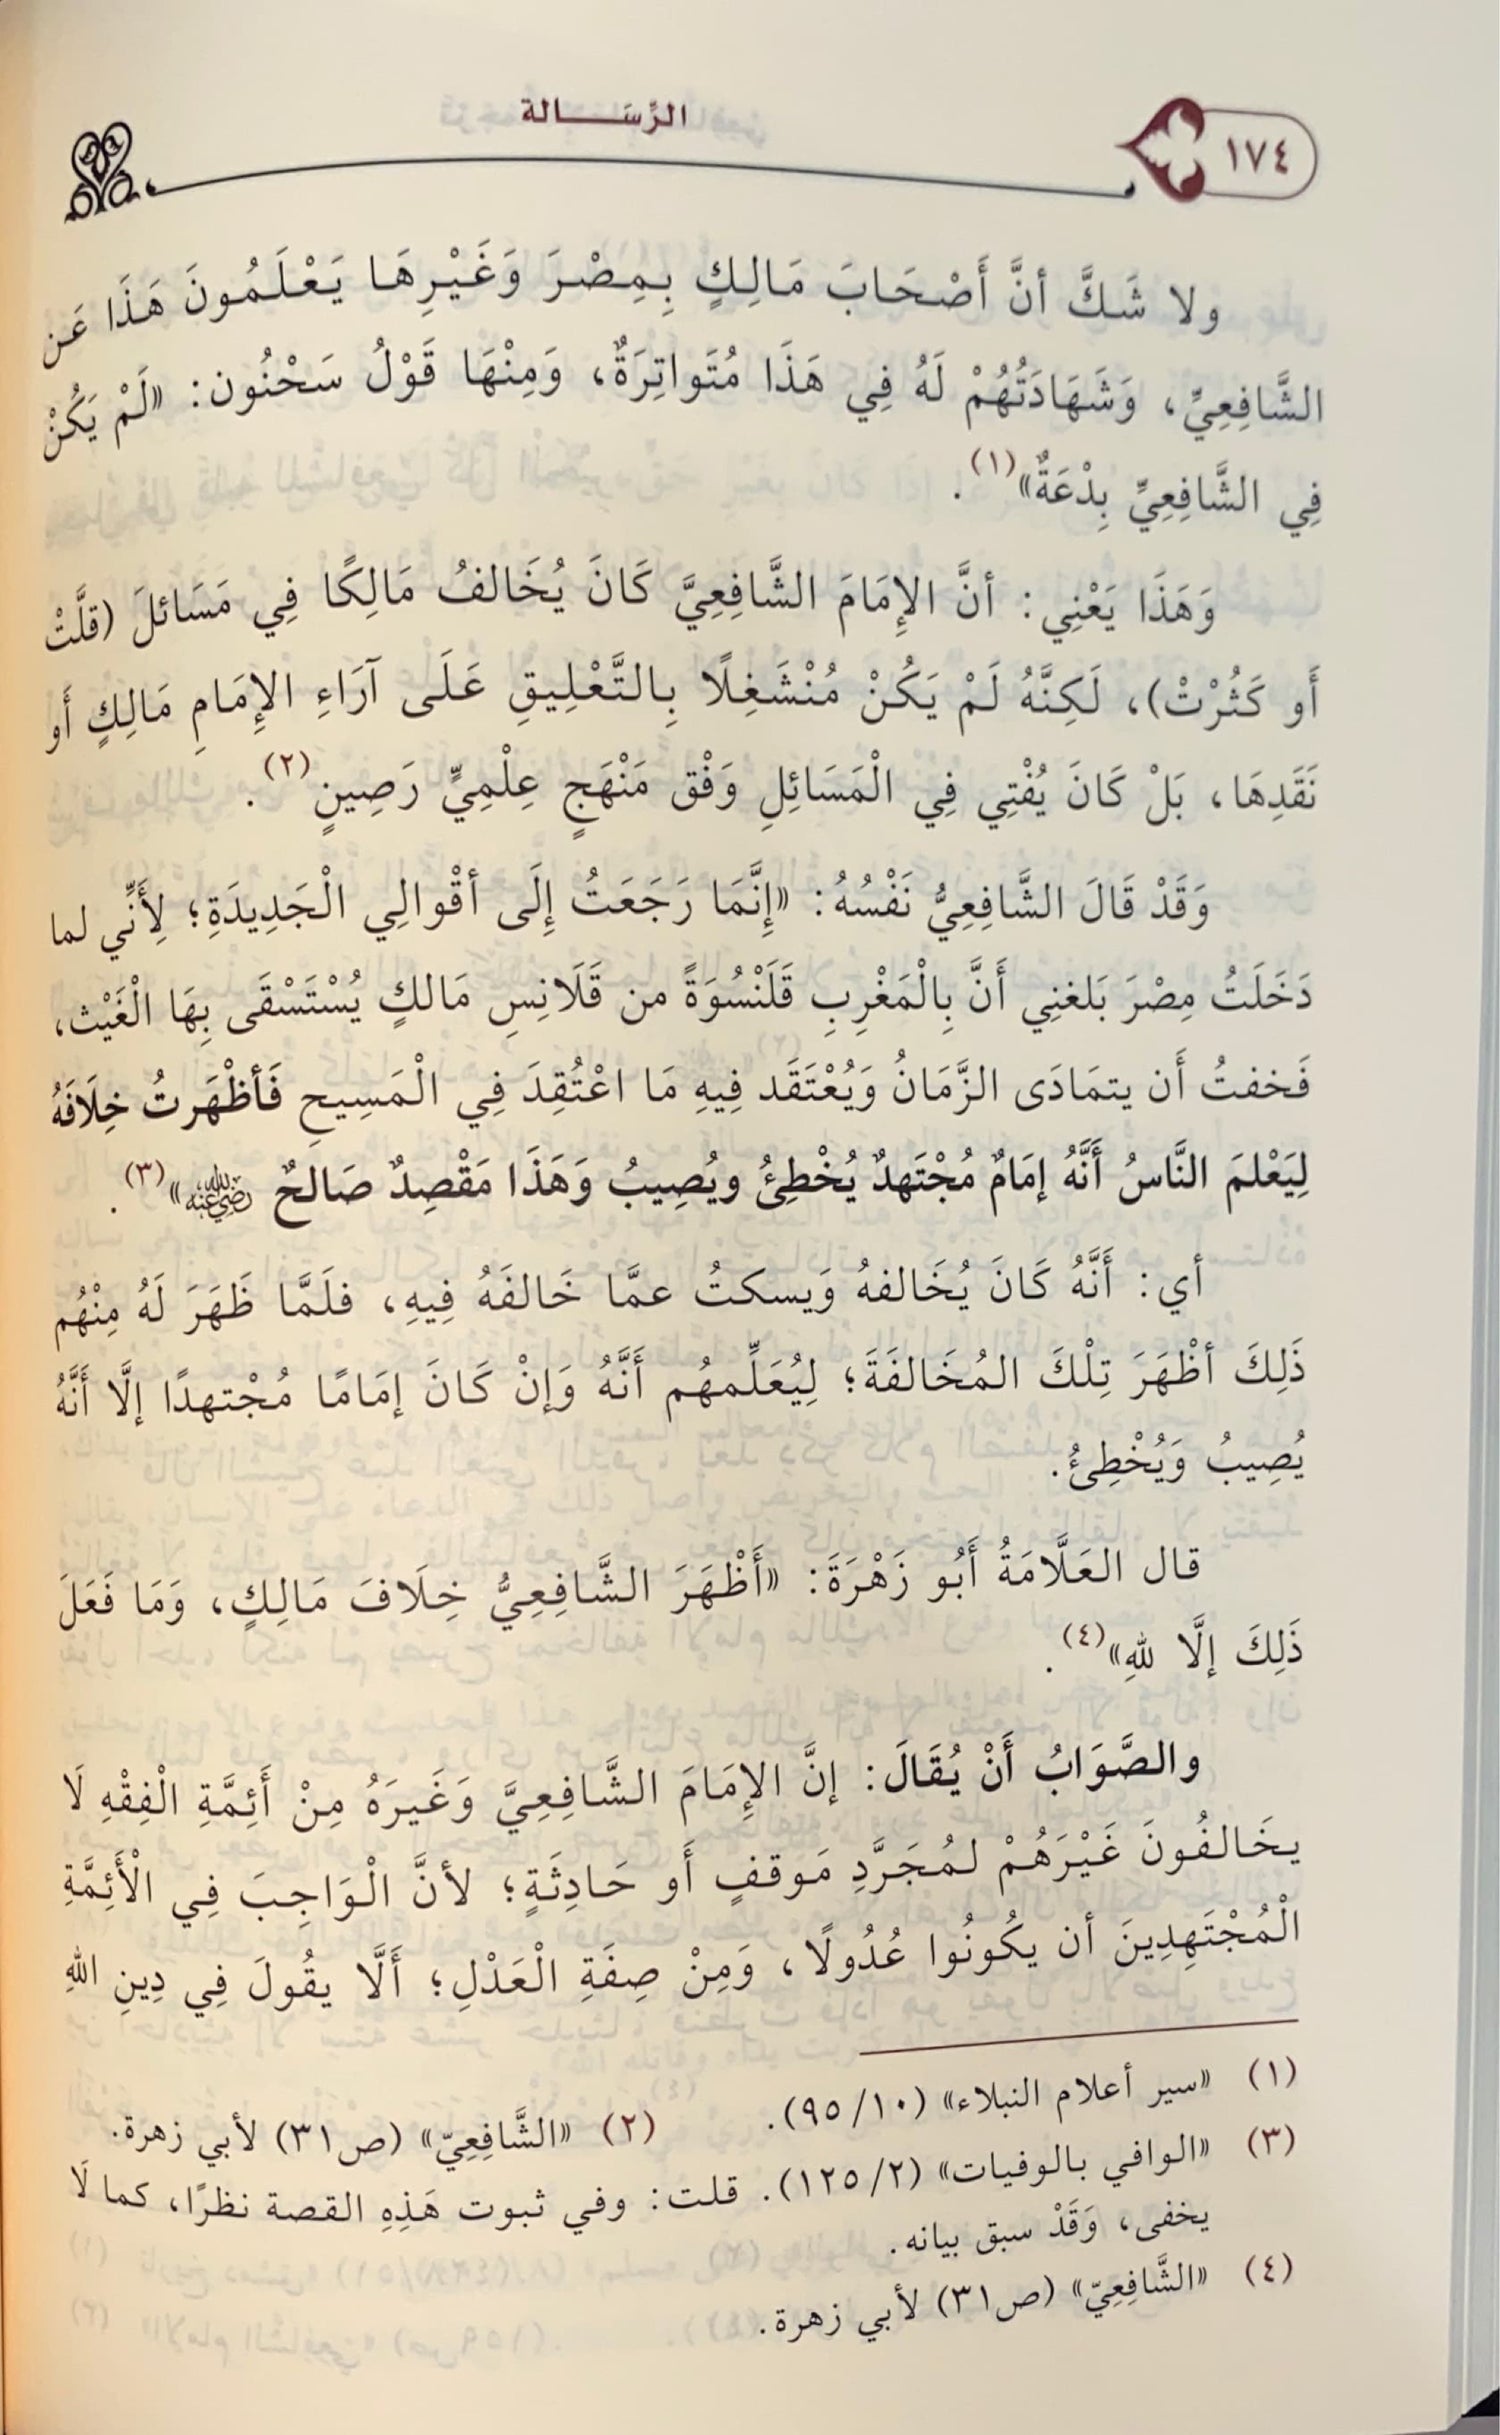 ١٧٤
الرِّسَـــالة
ولا شَكَّ أنَّ أَصْحَابَ مَالِكٍ بِمِصْرَ وَغَيْرِهَا يَعْلَمُونَ هَذَا عَن
الشَّافِعِيِّ، وَشَهَادَتُهُمْ لَهُ فِي هَذَا مُتَواتِرَةٌ، وَمِنْهَا قَوْلُ سَحْنُون: «لَمْ يَكُنْ
فِي الشَّافِعِيِّ بِدْعَةٌ»(١).
وَهَذَا يَعْنِي: أنَّ الإِمَامَ الشَّافِعِيَّ كَانَ يُخَالفُ مَالِكًا فِي مَسَائلَ (قلَّتْ
أَو كَثُرْتْ)، لَكِنَّهُ لَمْ يَكُنْ مُنْشَغِلًا بِالتَّعْلِيقِ عَلَى آرَاءِ الإِمَامِ مَالِكٍ أَو
نَقَدِهَا، بَلْ كَانَ يُفْتِي فِي الْمَسَائِلِ وَفْق مَنْهَجٍ عِلْمِيٍّ رَصِينٍ(٢).
وَقَدْ قَالَ الشَّافِعِيُّ نَفْسُهُ: «إِنَّمَا رَجَعَتُ إِلَى أقْوالِي الْجَدِيدَةِ؛ لِأَنِّي لما
دَخَلَتُ مِصْرَ بَلغنِي أَنَّ بِالْمَغْرِبِ قَلَنْسُوَةً من قَلَانِسِ مَالكٍ يُسْتَسْقَى بِهَا الْغَيْث،
فَخفتُ أَن يتمَادَى الزَّمَانُ وَيُعْتَقَد فِيهِ مَا اعْتُقِدَ فِي الْمَسِيحِ فَأظْهَرتُ خِلَافَهُ
لِيَعْلمَ النَّاسُ أَنَّهُ إمَامٌ مُجْتَهدٌ يُخْطِئُ ويُصِيبُ وَهَذَا مَقْصِدٌ صَالحٌ ﵁»(٣).
أي: أَنَّهُ كَانَ يُخَالفهُ وَيسكتُ عمَّا خَالفَهُ فِيهِ، فلَمَّا ظَهَرَ لَهُ مِنْهُم
ذَلِكَ أظْهَرَ تِلْكَ المُخَالفَةَ؛ لِيُعَلِّمهُم أَنَّهُ وَإنْ كَانَ إمَامًا مُجْتهدًا إلَّا أنَّهُ
يُصِيبُ وَيُخْطِئُ.
قال العَلَّامَةُ أَبُو زَهْرَةَ: «أَظْهَرَ الشَّافِعِيُّ خِلَافَ مَالِكٍ، وَمَا فَعَلَ
ذَلِكَ إلَّا للهِ»(٤).
والصَّوَابُ أَنْ يُقَالَ: إنَّ الإِمَامَ الشَّافِعِيَّ وَغَيرَهُ مِنْ أَئِمَّةِ الْفِقْهِ لَا
يخَالفُونَ غَيْرَهُمْ لمُجَرَّدِ مَوقفٍ أَو حَادِثَةٍ؛ لأنَّ الْوَاجِبَ فِي الْأَئِمَّةِ
الْمُجْتَهِدِينَ أن يكُونُوا عُدُولًا، وَمِنْ صِفَةِ الْعَدْلِ؛ أَلَّا يقُولَ فِي دِينِ اللهِ
(١) «سير أعلام النبلاء» (٩٥/١٠). (٢) «الشَّافِعِيّ» (ص٣١) لأبي زهرة.
(٣) «الوافي بالوفيات» (١٢٥/٢). قلت: وفي ثبوت هَذِهِ القصة نظرًا، كما لَا
يخفى، وَقَدْ سبق بيانه.
(٤) «الشَّافِعِيّ» (ص٣١) لأبي زهرة.